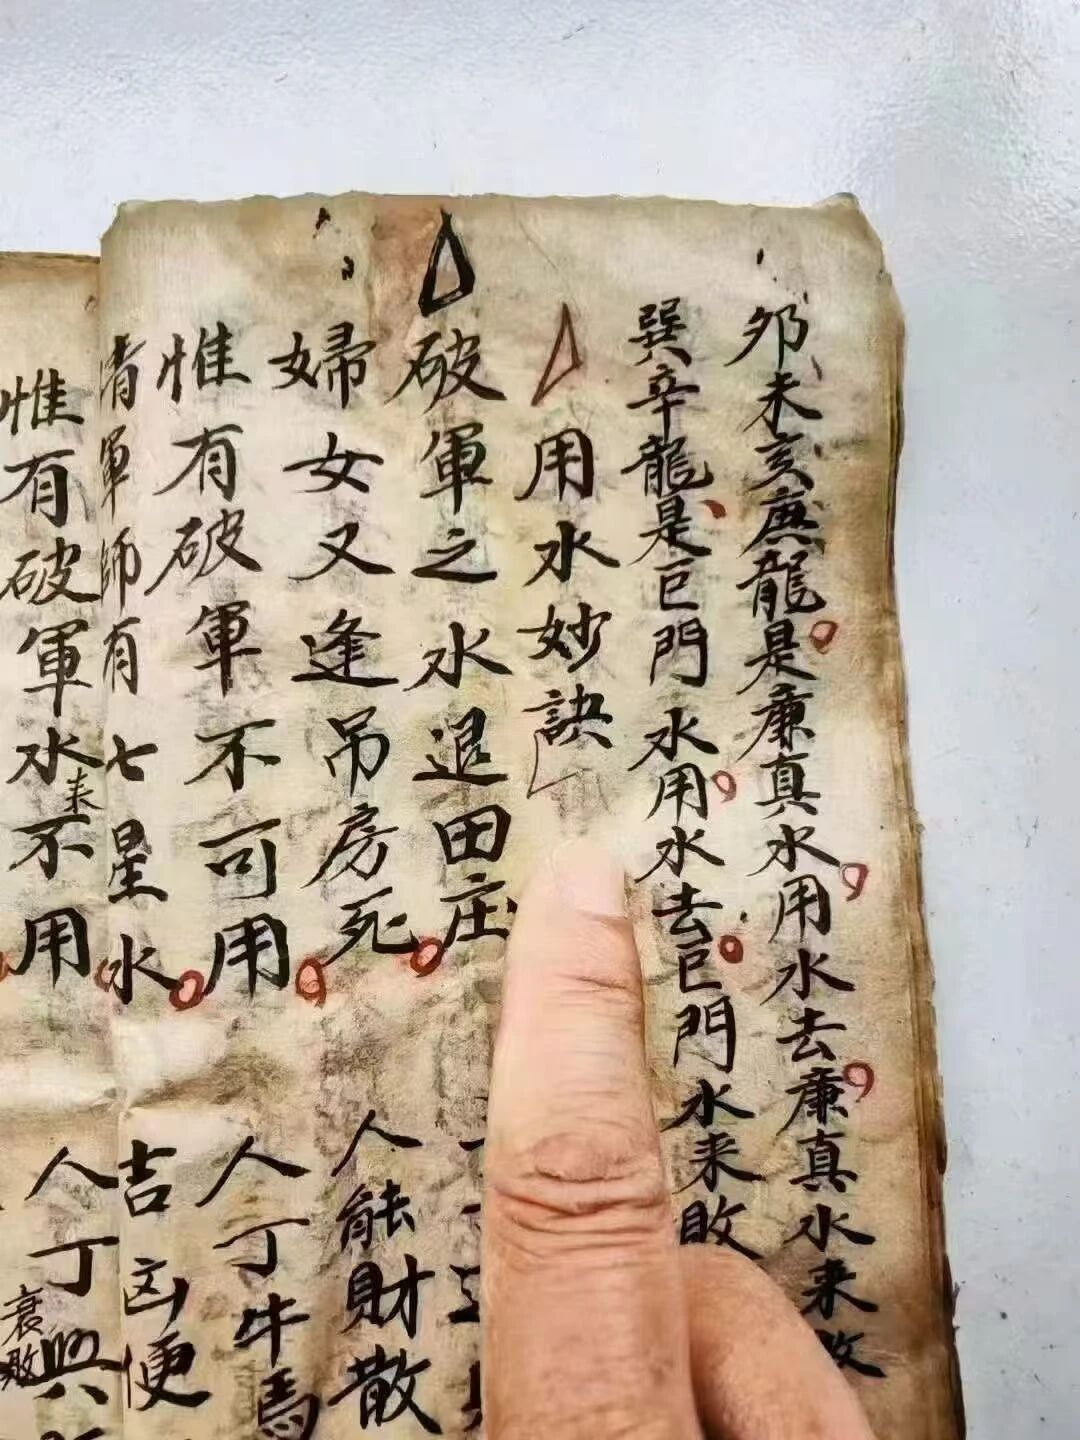 夘未亥庚龍是廉真水用水去廉真水来敗
巽辛龍是巨門水用水去巨門水来敗
用水妙訣
破軍之水退田庄
婦女又逢吊房死 人能財散
惟有破軍不可用 人丁牛馬
有軍師有七星水 吉凶便
惟有破軍水来不用 人丁興
衰敗